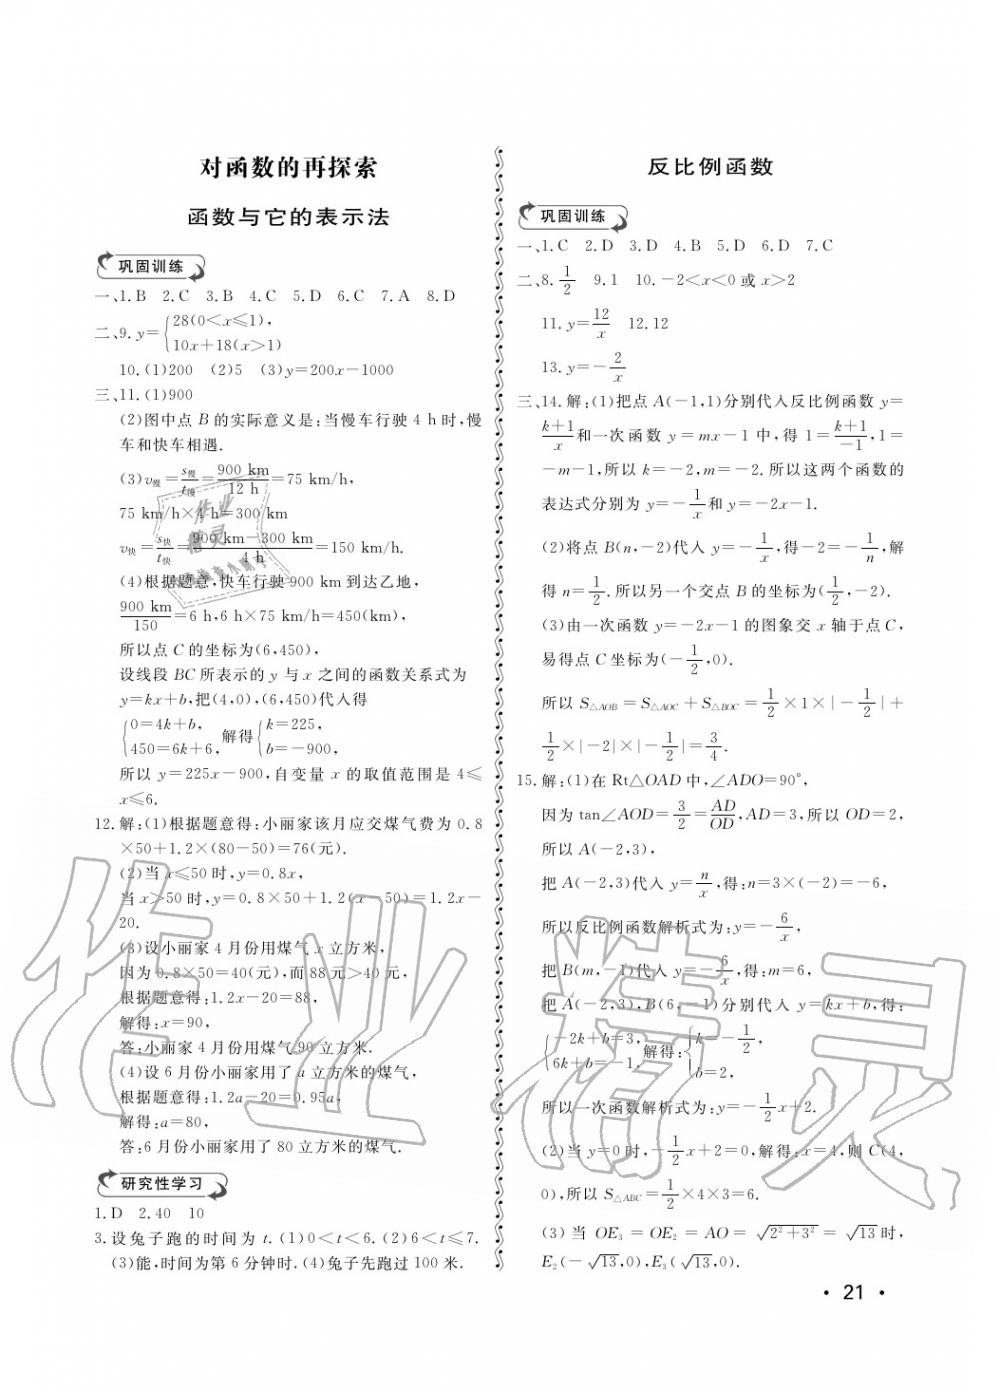 对函数的再探索
函数与它的表示法
巩固训练
一、1.B 2.C 3.B 4.C 5.D 6.C 7.A 8.D
二、9. y={28(0<x≤1),
10x+18(x>1)
10.(1)200 (2)5 (3)y=200x-1000
三、11.(1)900
(2)图中点 B 的实际意义是:当慢车行驶 4 h时,慢
车和快车相遇.
(3)v慢=s慢/t慢=900 km/12 h=75 km/h,
75 km/h×4 h=300 km
v快=s快/t快=900 km-300 km/4 h=150 km/h.
(4)根据题意,快车行驶 900 km 到达乙地,
900 km/150=6 h,6 h×75 km/h=450(km),
所以点 C 的坐标为(6,450),
设线段 BC 所表示的 y 与 x 之间的函数关系式为
y=kx+b,把(4,0),(6,450)代入得
{0=4k+b, 450=6k+6, 解得{k=225, b=-900,
所以 y=225x-900,自变量 x 的取值范围是 4≤
x≤6.
12.解:(1)根据题意得:小丽家该月应交煤气费为 0.8
×50+1.2×(80-50)=76(元).
(2)当 x≤50 时,y=0.8x,
当 x>50 时,y=0.8×50+1.2(x-50)=1.2x-
20.
(3)设小丽家 4 月份用煤气 x 立方米,
因为 0.8×50=40(元),而 88 元>40 元,
根据题意得:1.2x-20=88,
解得:x=90,
答:小丽家 4 月份用煤气 90 立方米.
(4)设 6 月份小丽家用了 a 立方米的煤气,
根据题意得:1.2a-20=0.95a,
解得:a=80,
答:6 月份小丽家用了 80 立方米的煤气.
研究性学习
1.D 2.40 10
3.设兔子跑的时间为 t.(1)0<t<6.(2)6<t≤7.
(3)能,时间为第 6 分钟时.(4)兔子先跑过 100 米.
反比例函数
巩固训练
一、1.C 2.D 3.D 4.B 5.D 6.D 7.C
二、8. 1/2 9.1 10.-2<x<0 或 x>2
11. y=12/x 12.12
13. y=-2/x
三、14.解:(1)把点 A(-1,1)分别代入反比例函数 y=
k+1/x 和一次函数 y=mx-1 中,得 1=k+1/-1,1=
-m-1,所以 k=-2,m=-2.所以这两个函数的
表达式分别为 y=-1/x 和 y=-2x-1.
(2)将点 B(n,-2)代入 y=-1/x,得-2=-1/n,解
得 n=1/2.所以另一个交点 B 的坐标为(1/2,-2).
(3)由一次函数 y=-2x-1 的图象交 x 轴于点 C,
易得点 C 坐标为(-1/2,0).
所以 S△AOB=S△AOC+S△BOC=1/2×1×|-1/2|+
1/2×|-2|×|-1/2|=3/4.
15.解:(1)在 Rt△OAD 中,∠ADO=90°,
因为 tan∠AOD=3/2=AD/OD,AD=3,所以 OD=2,
所以 A(-2,3),
把 A(-2,3)代入 y=n/x,得:n=3×(-2)=-6,
所以反比例函数解析式为:y=-6/x,
把 B(m,-1)代入 y=-6/x,得:m=6,
把 A(-2,3),B(6,-1)分别代入 y=kx+b,得:
{-2k+b=3, 6k+b=-1, 解得:{k=-1/2, b=2,
所以一次函数解析式为:y=-1/2x+2.
(2)当 y=0 时,-1/2x+2=0,解得:x=4,则 C(4,
0),所以 S△ABC=1/2×4×3=6.
(3)当 OE3=OE2=AO=√2²+3²=√13时,
E2(-√13,0),E3(√13,0).
• 21 •
作业精灵